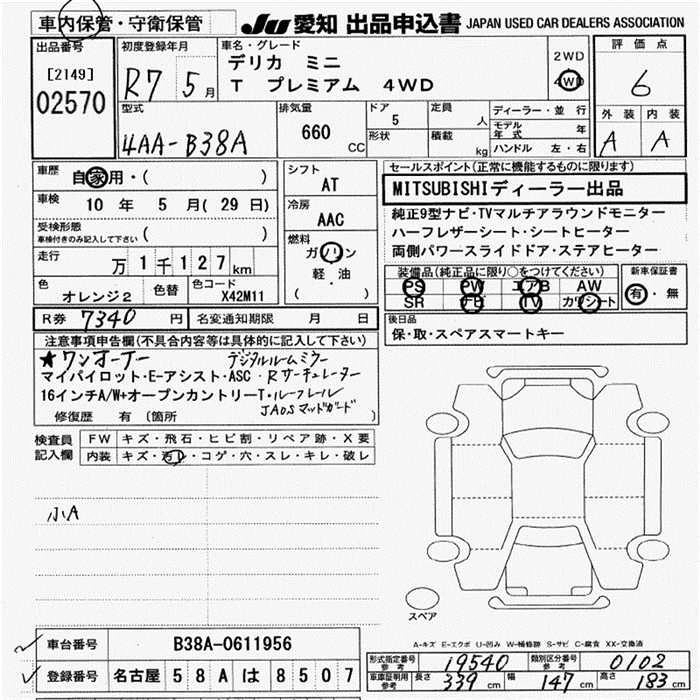 車内保管・守衛保管
JU 愛知 出品申込書 JAPAN USED CAR DEALERS ASSOCIATION
出品番号
[2149]
02570
初度登録年月
R7 5月
車名・グレード
デリカ ミニ
T プレミアム 4WD
2WD
4WD
評価点
6
型式
4AA-B38A
排気量
660 CC
ドア
5
形状
定員
人
積載
kg
ディーラー・並行
モデル年式 年
ハンドル 左・右
外装 内装
A A
車歴
自家用・( )
車検
10 年 5 月(29 日)
受検形態
車検付きのみ記入して下さい ( )
走行
万 1 千 1 2 7 km
色
オレンジ2
色替
色コード
X42M11
シフト
AT
冷房
AAC
燃料
ガソリン
軽・油
( )
セールスポイント(正常に機能するものに限ります)
MITSUBISHIディーラー出品
純正9型ナビ・TVマルチアラウンドモニター
ハーフレザーシート・シートヒーター
両側パワースライドドア・ステアヒーター
装備品(純正品に限り○をつけてください)
PS PW エアB AW
SR ナビ TV カワシート
新車保証書
有・無
R券 7340 円 名変通知期限 月 日
後日品
保・取・スペアスマートキー
注意事項申告欄(不具合内容等は具体的に記入して下さい)
★ワンオーナー デジタルルームミラー
マイパイロット・E-アシスト・ASC・Rサーキュレーター
16インチA/W+オープンカントリーT・ルーフレール
JAOSマッドガード
修復歴 有 (箇所 )
検査員記入欄
FW キズ・飛石・ヒビ割・リペア跡・X要
内装 キズ・汚レ・コゲ・穴・スレ・キレ・破レ
小A
スペア
A-キズ E-エクボ U-凹み W-補修跡 S-サビ C-腐食 XX-交換済
車台番号 B38A-0611956
登録番号 名古屋 5 8 A は 8 5 0 7
形式指定番号 参考 19540 類別区分番号 参考 0102
車庫証明用 参考 長さ 339 cm 幅 147 cm 高さ 183 cm